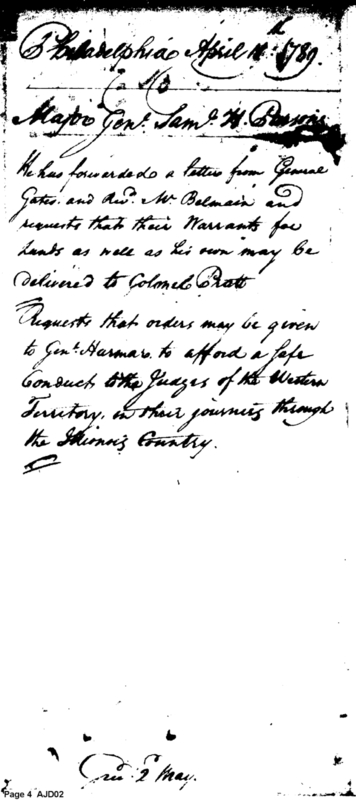 Philadelphia April 1789.
Major Genl. Saml. H. Parsons
He has forwarded a letter from General
Gates. and Revd. Mr Balmain and
requests that their Warrants for
Lands as well as his own may be
delivered to Colonel Pratt
Requests that orders may be given
to Genl. Harmar, to afford a Safe
Conduct to the Judges of the Western
Territory, in their journeys through
the Illionois Country.
2d May.
Page 4 AJD02